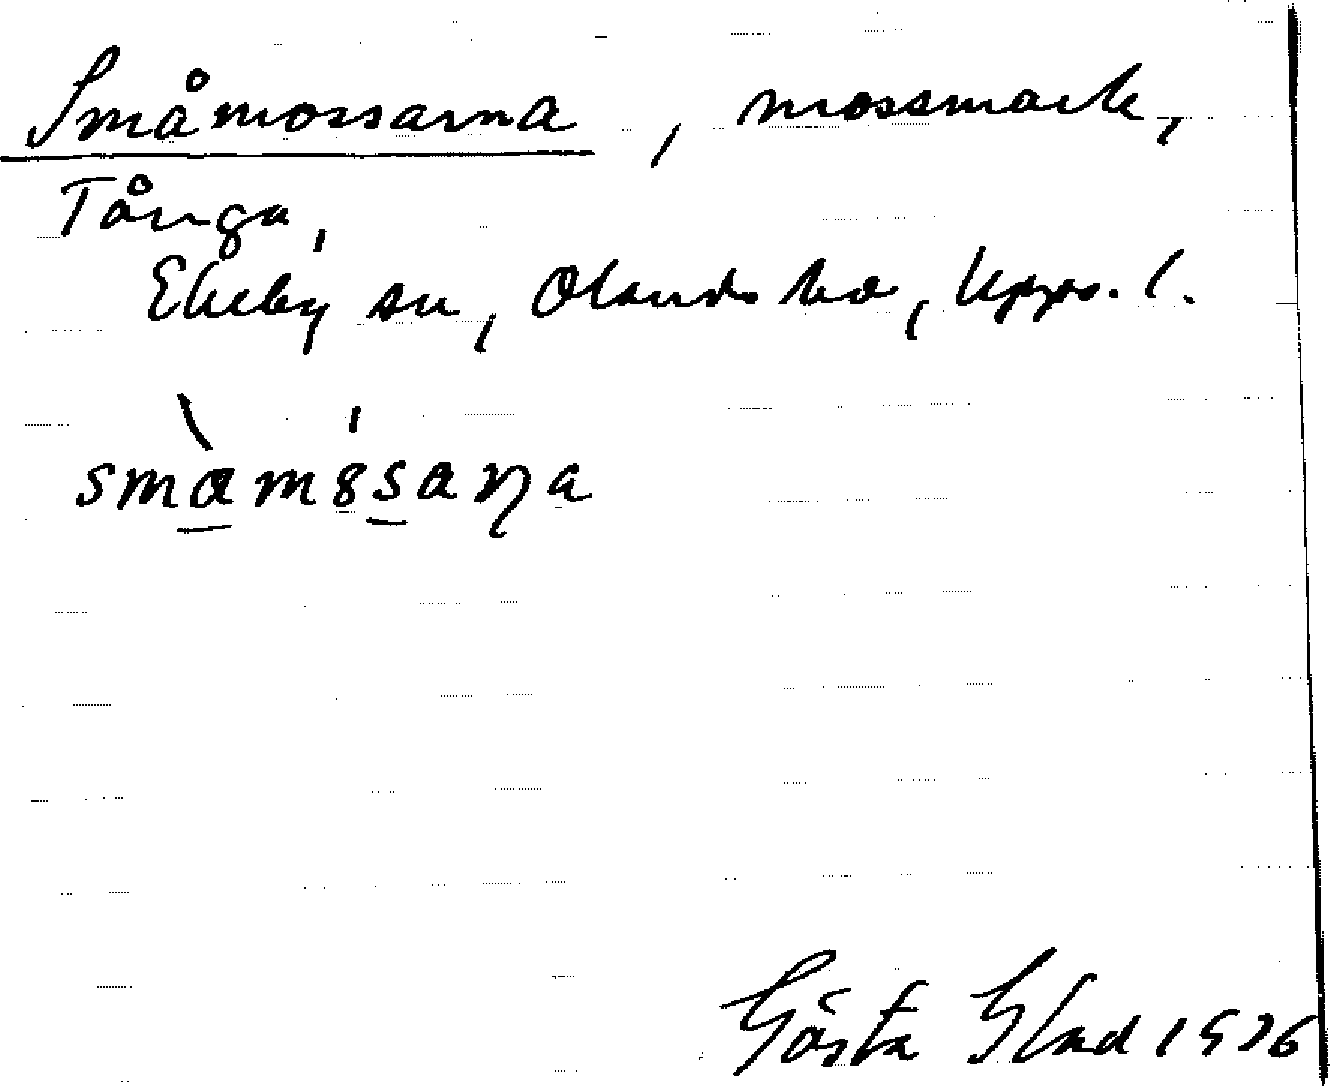 Småmossarna, mossmark,
Tånga,
Ekeby sn, Olands hd, Upps. l.
småmȣsaɳa
Gösta Blad 1936